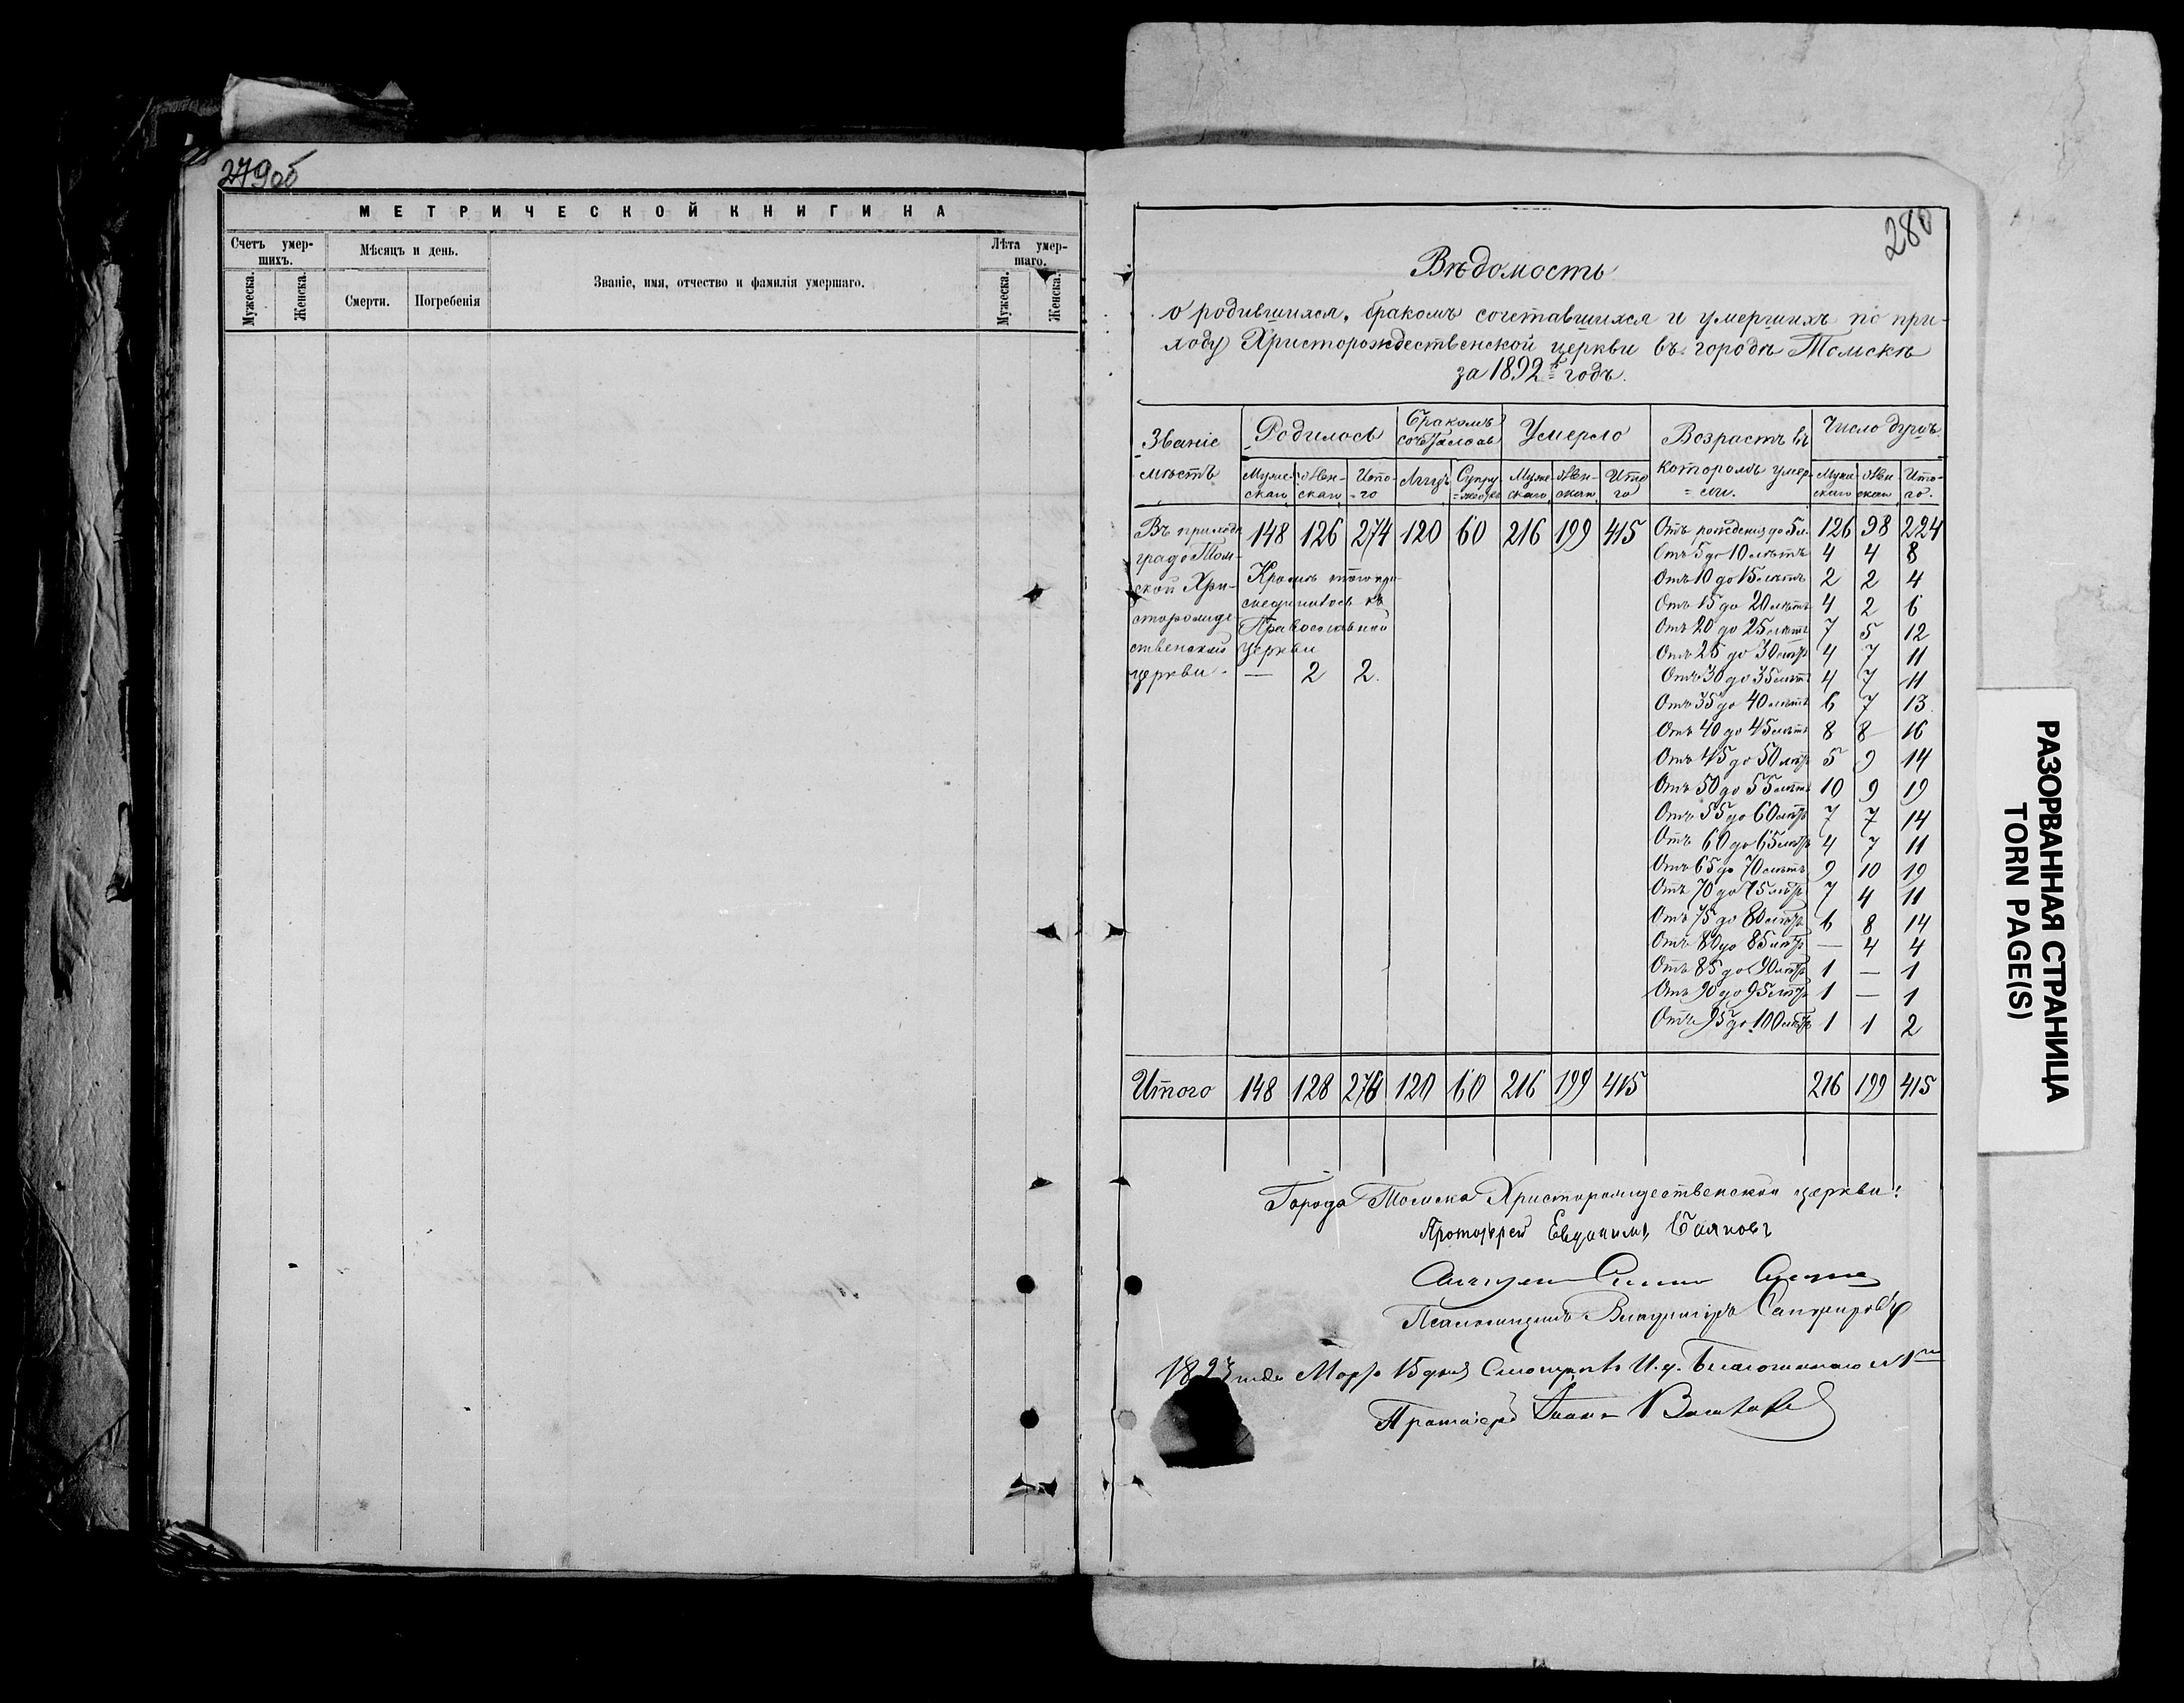 279об
МЕТРИЧЕСКОЙ КНИГИ НА
Счетъ умер-
шихъ.
Мѣсяцъ и день.
Званіе, имя, отчество и фамилія умершаго.
Лѣта умер-
шаго.
Мужеска. Женска. Смерти. Погребенія Мужеска. Женска.
280
Вѣдомость
о родившихся, бракомъ сочетавшихся и умершихъ по при-
ходу Христорождественской церкви въ городѣ Томскѣ
за 1892й годъ.
Званіе
мѣстъ
Родилось
Бракомъ
сочеталось
Умерло
Возрастъ въ
которомъ умер-
=ли.
Число душъ.
Муже-
скаго
Жен-
скаго
Ито-
=го
Лицъ
Супру
=жествъ
Муже
скаго
Жен-
скаго
Ито
го
Муже
скаго
Жен
скаго
Ито-
го.
Въ приходѣ
градо Том-
ской Хри-
сторожде-
ственской
церкви.
148 126 274 120 60 216 199 415
Кромѣ того при-
соединилось къ
Православной
церкви
— 2 2.
Отъ рожденія до 5 л. 126 98 224
Отъ 5 до 10 лѣтъ 4 4 8
Отъ 10 до 15 лѣтъ 2 2 4
Отъ 15 до 20 лѣтъ 4 2 6
Отъ 20 до 25 лѣтъ 7 5 12
Отъ 25 до 30 лѣтъ 4 7 11
Отъ 30 до 35 лѣтъ 4 7 11
Отъ 35 до 40 лѣтъ 6 7 13.
Отъ 40 до 45 лѣтъ 8 8 16
Отъ 45 до 50 лѣтъ 5 9 14
Отъ 50 до 55 лѣтъ 10 9 19
Отъ 55 до 60 лѣтъ 7 7 14
Отъ 60 до 65 лѣтъ 4 7 11
Отъ 65 до 70 лѣтъ 9 10 19
Отъ 70 до 75 лѣтъ 7 4 11
Отъ 75 до 80 лѣтъ 6 8 14
Отъ 80 до 85 лѣтъ — 4 4
Отъ 85 до 90 лѣтъ 1 — 1
Отъ 90 до 95 лѣтъ 1 — 1
Отъ 95 до 100 лѣтъ 1 1 2
Итого 148 128 276 120 60 216 199 415 216 199 415
Города Томска Христорождественской церкви:
Протоіерей Евдокимъ
Псаломщикъ Владиміръ Сапфировъ
1893 года Марта 15 дня Смотрѣлъ И. д. Благочиннаго № 1го
Протоіерей
РАЗОРВАННАЯ СТРАНИЦА
TORN PAGE(S)